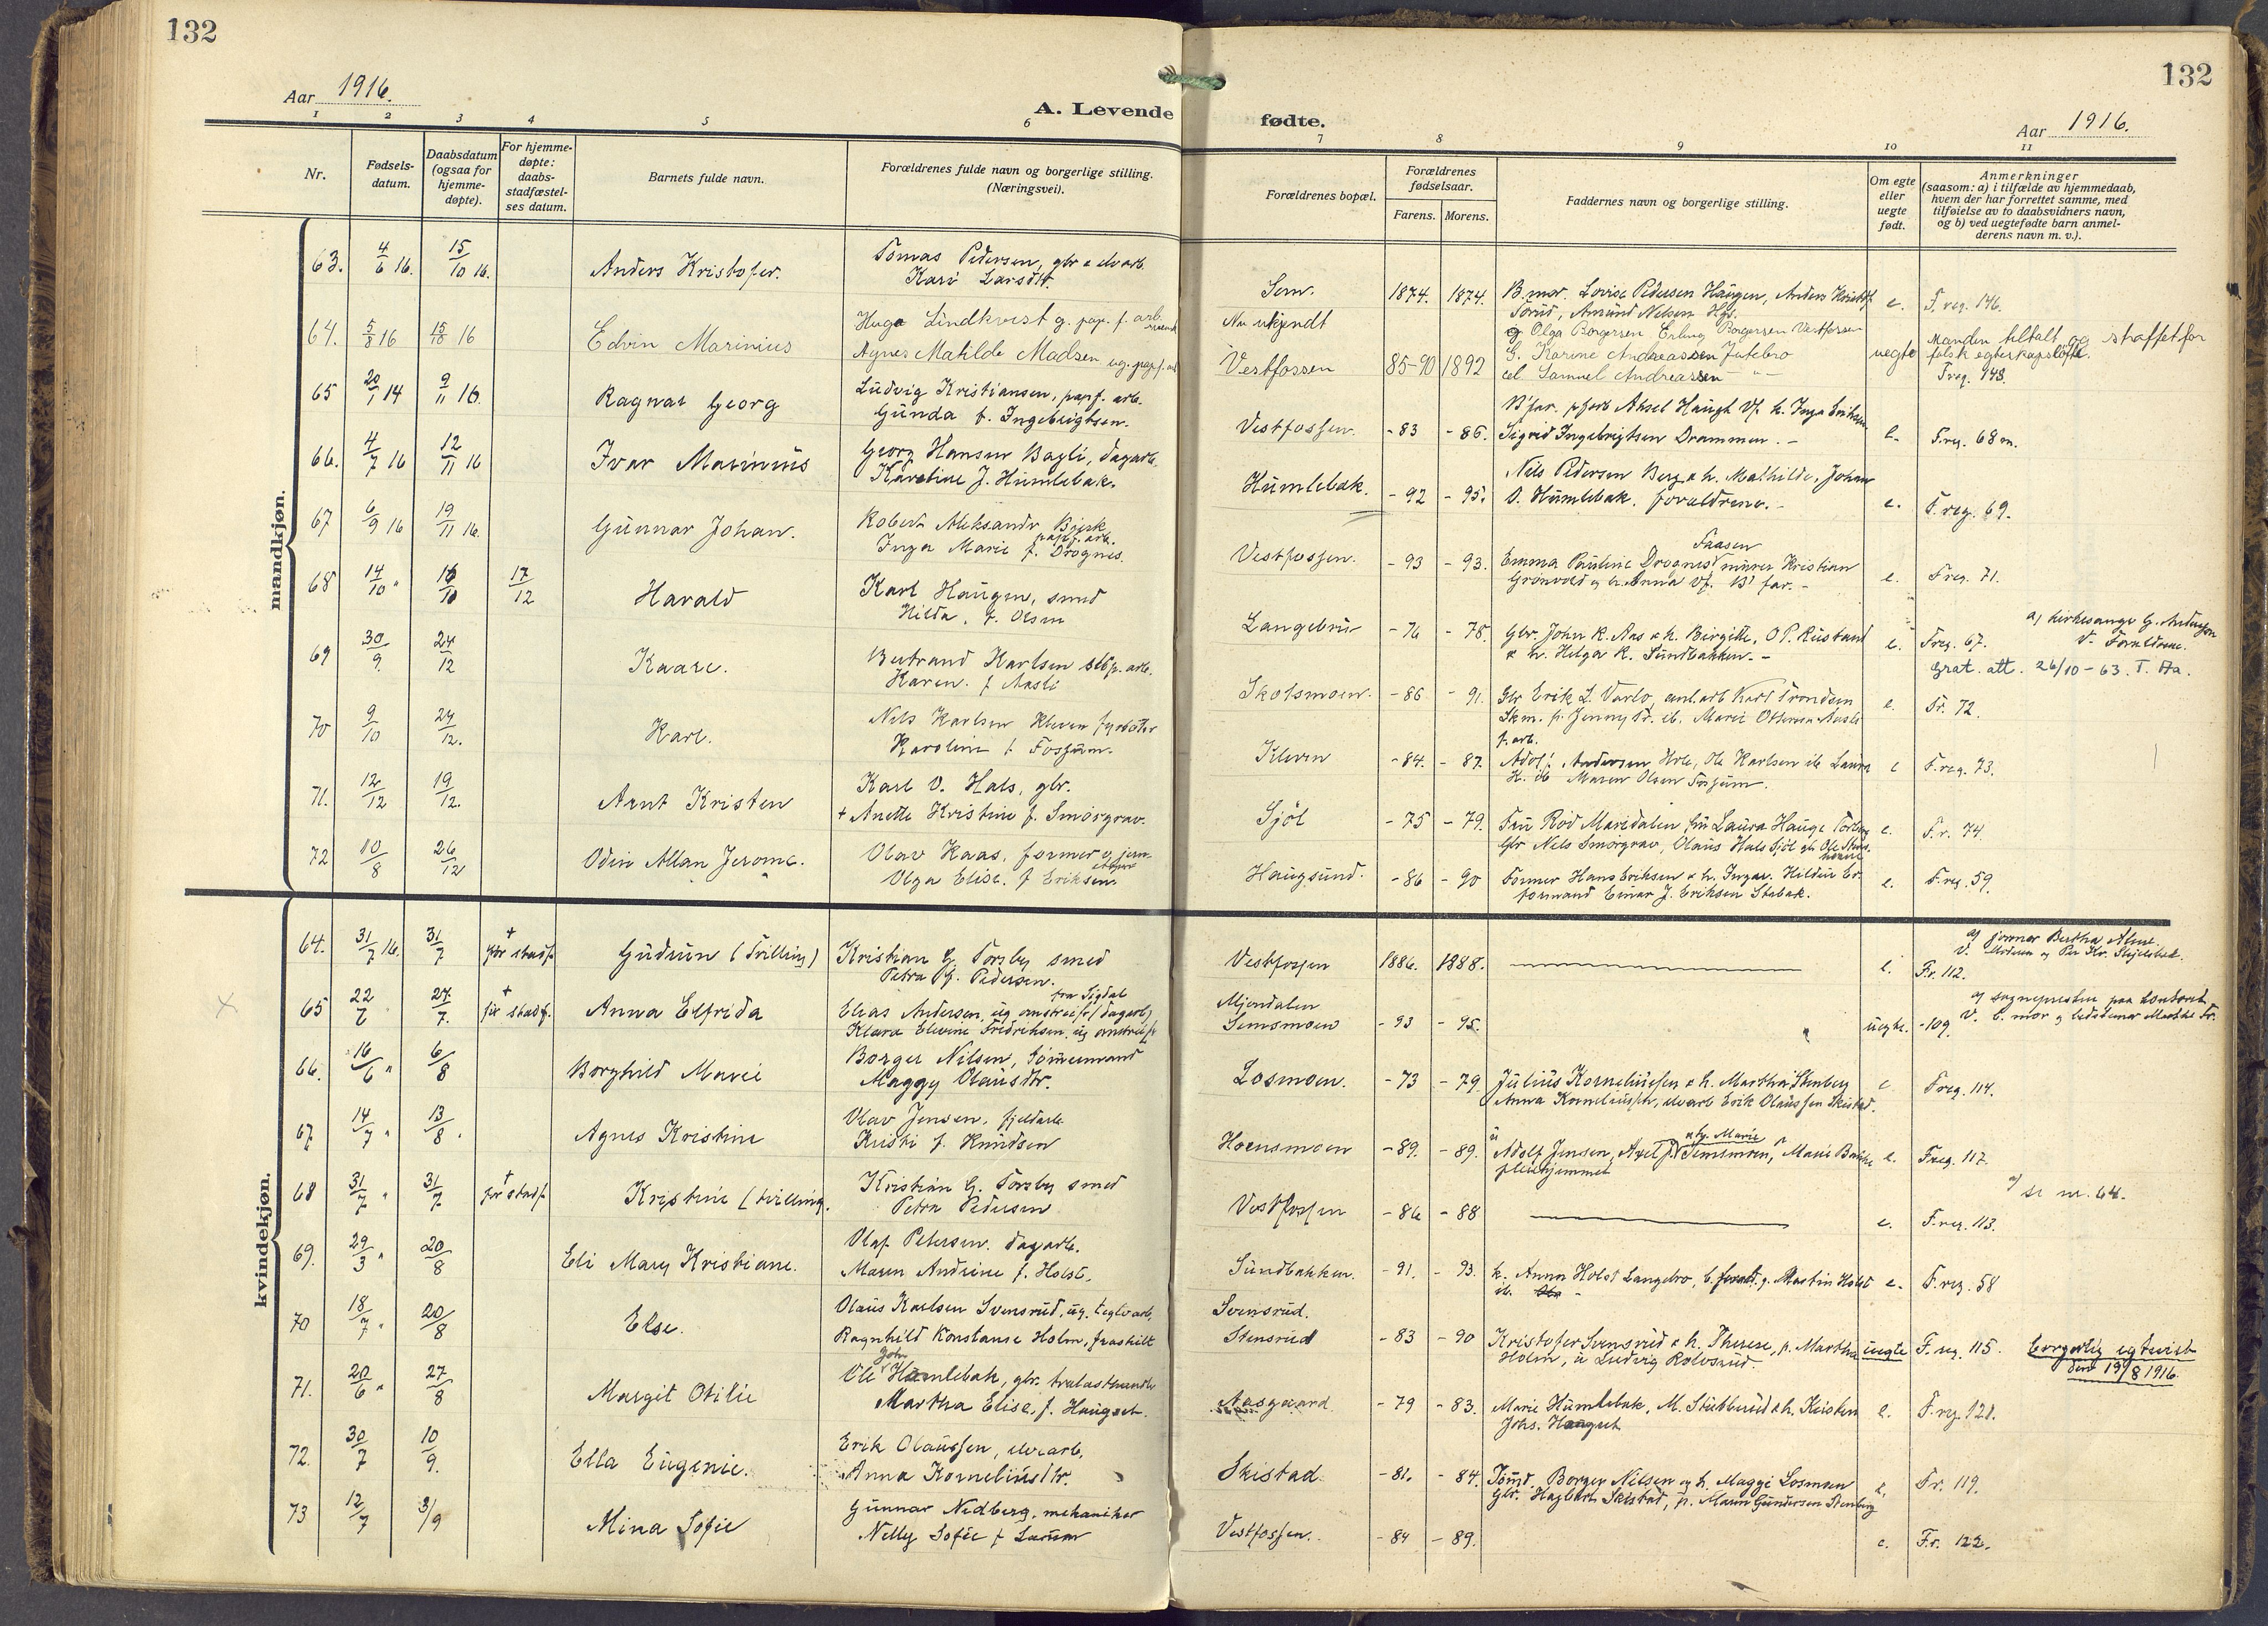 132
132
Aar 1916.
A. Levende fødte.
Aar 1916.
1 2 3 4 5 6 7 8 9 10 11
Nr.
Fødsels-
datum.
Daabsdatum
(ogsaa for
hjemme-
døpte).
For hjemme-
døpte:
daabs-
stadfæstel-
ses datum.
Barnets fulde navn.
Forældrenes fulde navn og borgerlige stilling.
(Næringsvei).
Forældrenes bopæl.
Forældrenes
fødselsaar.
Farens. Morens.
Faddernes navn og borgerlige stilling.
Om egte
eller
uegte
født.
Anmerkninger
(saasom: a) i tilfælde av hjemmedaab,
hvem der har forrettet samme, med
tilføielse av to daabsvidners navn,
og b) ved uegtefødte barn anmel-
derens navn m. v.).
mandkjøn.
63. 4/6 16. 15/10 16. Anders Kristofer.
Tomas Pedersen, gbr & elvarb.
Kari Larsdtr.
Sem. 1874. 1874.
B. mor. Lovise Pedersen Haugen, Anders Kristof
Torud, Amund Nelsen Hgs.
e. F. reg. 146.
64. 5/8 16 15/10 16 Edvin Marinius
Hugo Lindkvist g. pap. f. arb. svensk
Agnes Matilde Madsen ug. pap. f. arb
Nu ukjendt
Vestfossen 85-90 1892
g Olga Borgersen Erling Borgersen Vestfossen
G. Karine Andreassen Jutebro
el Samuel Andreassen - " -
uegte
Manden tiltalt og straffet for
falsk egteskapsløfte.
F reg. 148.
65 20/1 14 9/11 16. Ragnar Georg
Ludvig Kristiansen, papf. arb.
Gunda f. Ingebrigtsen.
Vestfossen. -83 -86.
B' far. pfarb Aksel Haugh Vf. h. Inga Eriksen
Sigrid Ingebrigtsen Drammen. -
e. F. reg. 68 m.
66. 4/7 16 12/11 16 Ivar Marinius
Georg Hansen Bagli, dagarb.
Karoline J. Humlebak.
Humlebak. - 92 - 95.
Nils Pedersen Berg & h. Mathilde, Johan
O. Humlebak. forældrene. -
e. F. reg. 69.
67 6/9 16 19/11 16. Gunnar Johan.
Robert Aleksandr Bjerk
papf. arb.
Inga Marie f. Drognes.
Vestfossen. - 93 - 93.
Faasen
Emma Pauline Drognes murer Kristian
Grønvold og h. Anna Vf. B' far. -
e. F reg. 71.
68 14/10 " 16/10 17/12 Harald
Karl Haugen, smed
Hilda. f. Olsen
Langebru - 76 - 78.
Gbr. John R. Aas & h. Birgitte, O P. Rustand
& h. Helga R. Sundbakken. -
e. F reg. 67.
a) kirkesanger G. Andersen
V. Forældrene.
Grat. att. 26/10 - 63. T. Aa.
69 30/9. 24/12 Kaare.
Bertrand Karlsen slbp. arb.
Karen. f Aasli
Skotsmoen. - 86 - 91.
Gbr Erik L. Varlo, anl. arb Karl Trondsen
Skm. p. Jenny Tr. ib. Marie Ottersen Aasli
e. Fr. 72.
70 9/10 24/12. Karl.
Nils Karlsen Kleven fyrbøter
Karoline f. Fossum.
Kleven - 84. - 87.
f. arb.
Adolf Andersen Hole, Ole Karlsen ib Laura
K. ib Maren Olsen Fossum.
e F. reg. 73.
71. 12/12 19/12. Arnt Kristen
Karl O. Hals, gbr.
+ Anette Kristine f. Smørgrav.
Sjøl - 75 - 79.
Fru Rod Maridalen fru Laura Hauge
Gbr Nils Smørgrav, Olaus Hals Sjøl gbr Ole
e. F. r. 74.
72 10/8 26/12 Odin Allan Jerome.
Olav Kaas, former v jern
Olga Elise. f Eriksen.
Haugsund. - 86 - 90
Former Hans Eriksen & h. Inga. Hildur Er.
formand Einar J. Eriksen Stebak.
e. F. reg. 59.
kvindekjøn.
64. 31/7 16. 31/7 + før stadf. Gudrun (Tvilling)
Kristian G. Torsby smed
Petra G. Pedersen.
Vestfossen 1886. 1888.
e. F.r. 112.
a) jormor Bertha Alme.
V. Moderen og Per Kr. Skjelstad.
65 22/6 27/7. + før stadf. Anna Elfrida
fra Sigdal
Elias Andersen, ug omstreifer / dagarb)
Klara Elevine Fredriksen, ug omstreifer
Mjøndalen
Semsmoen - 93 - 95.
uegte. - 109.
a) sognepresten paa kontoret
V. b. mor
66. 16/6 " 6/8 Borghild Marie
Borger Nilsen, tømmermand
Maggy Olausdtr.
Losmoen. - 73 - 79.
Julius Korneliussen & h. Martha Stenberg
Anna Korneliussen, elvarb Erik Olaussen Skistad.
e F reg. 114.
67. 14/7 " 13/8. Agnes Kristine
Olav Jensen, fjeldarb
Kristi f. Knudsen
Hoensmoen - 89. - 89.
u & fg. Marie
Adolf Jensen, Axel J. Semsmoen, Marie
pleiehjemmet
e. F reg. 117.
68 31/7 " 31/7 + før stadf. Kristine (tvilling.
Kristian G. Torsby smed
Petra Pedersen
Vestfossen - 86 - 88
e. F. reg. 113.
a) se nr. 64.
69. 29/3 " 20/8 Eli Mary Kristiane.
Olaf Petersen. dagarb.
Maren Andrine f. Holst.
Sundbakken. - 91. - 93.
k. Anna Holst Langebro, b. forald. g. Martin Holst
ib.
e. F. reg. 58
70 18/7 " 20/8 Else.
Olaus Karlsen Svensrud, ug. teglv arb,
Ragnhild Konstanse Holm, fraskilt
Svensrud.
Stensrud - 83 - 90
Kristofer Svensrud & h. Therese, p. Martha
Holm, u Ludvig Kolosrud.
uegte F. reg. 115.
borgerlig egteviet
den 19/8 1916.
71. 20/6 " 27/8 Margit Otilie
Joh
Ole Humlebak, gbr. trelasthandler
Martha Elise, f. Haugset.
Aasgaard - 79 - 83.
Marie Humlebak, M. Stubberud & h. Kristen
Johs. Haugset
e. F. reg. 121.
72. 30/7 10/9. Ella Eugenie.
Erik Olaussen, elvearb.
Anna Korneliusdtr.
Skistad. - 81. - 84.
Tømd. Borger Nilsen og h. Maggi Losmoen
Gbr. Hagbart Skistad, p. Maren Gundersen Stenberg
e. Fr. 119.
73 12/7 3/9 Mina Sofie
Gunnar Nedberg, mekaniker
Nelly Sofie f Larsen
Vestfossen. - 84 - 89.
e. F.r. 122.